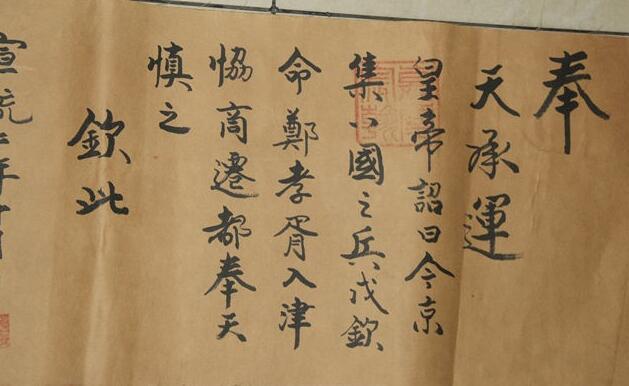 奉
天承運
皇帝詔曰今京
集八國之兵伐欽
命鄭孝胥入津
恊商遷都奉天
慎之
欽此
宣統二年十月